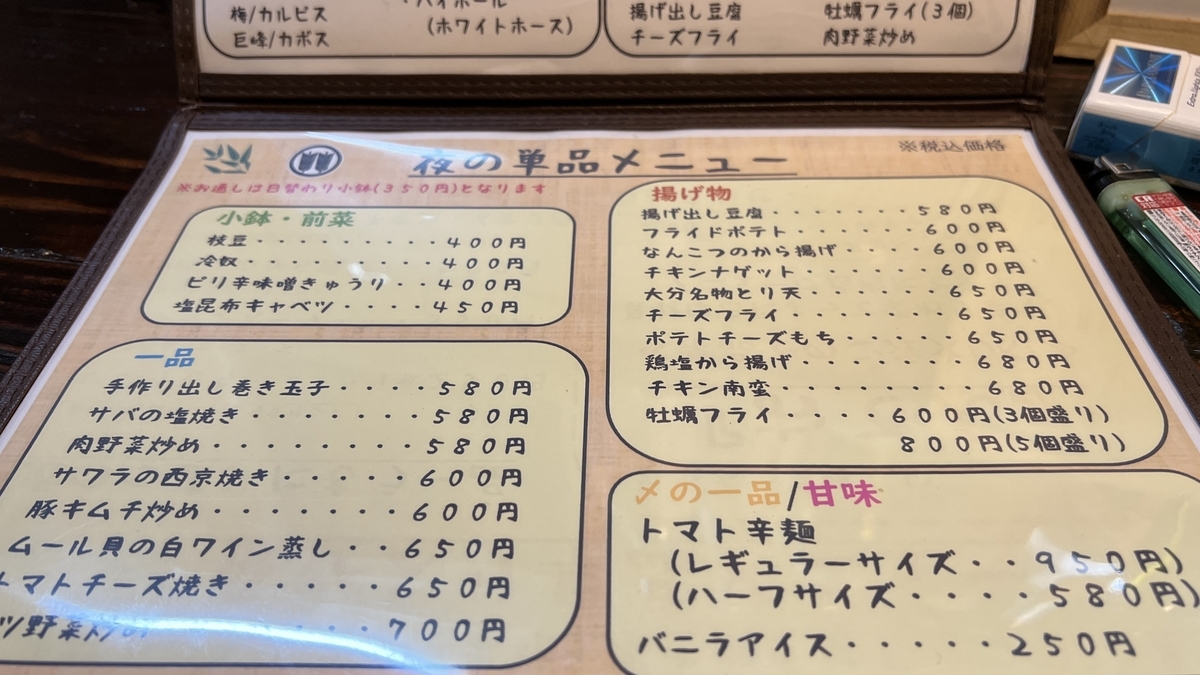 梅/カルピス
巨峰/カボス
・ハイボール
(ホワイトホース)
揚げ出し豆腐
チーズフライ
牡蠣フライ(3個)
肉野菜炒め
夜の単品メニュー
※税込価格
※お通しは日替わり小鉢(350円)となります
小鉢・前菜
枝豆・・・・・・・・・・400円
冷奴・・・・・・・・・・400円
ピリ辛味噌きゅうり・・400円
塩昆布キャベツ・・・・450円
一品
手作り出し巻き玉子・・・・580円
サバの塩焼き・・・・・・・580円
肉野菜炒め・・・・・・・・580円
サワラの西京焼き・・・・・600円
豚キムチ炒め・・・・・・・600円
ムール貝の白ワイン蒸し・・650円
トマトチーズ焼き・・・・・650円
ツ野菜炒め・・・・700円
揚げ物
揚げ出し豆腐・・・・・・・580円
フライドポテト・・・・・・600円
なんこつのから揚げ・・・・600円
チキンナゲット・・・・・・600円
大分名物とり天・・・・・・650円
チーズフライ・・・・・・・650円
ポテトチーズもち・・・・・650円
鶏塩から揚げ・・・・・・・680円
チキン南蛮・・・・・・・・680円
牡蠣フライ・・・・600円(3個盛り)
800円(5個盛り)
〆の一品/甘味
トマト辛麺
(レギュラーサイズ・・950円)
(ハーフサイズ・・・・580円)
バニラアイス・・・・・250円